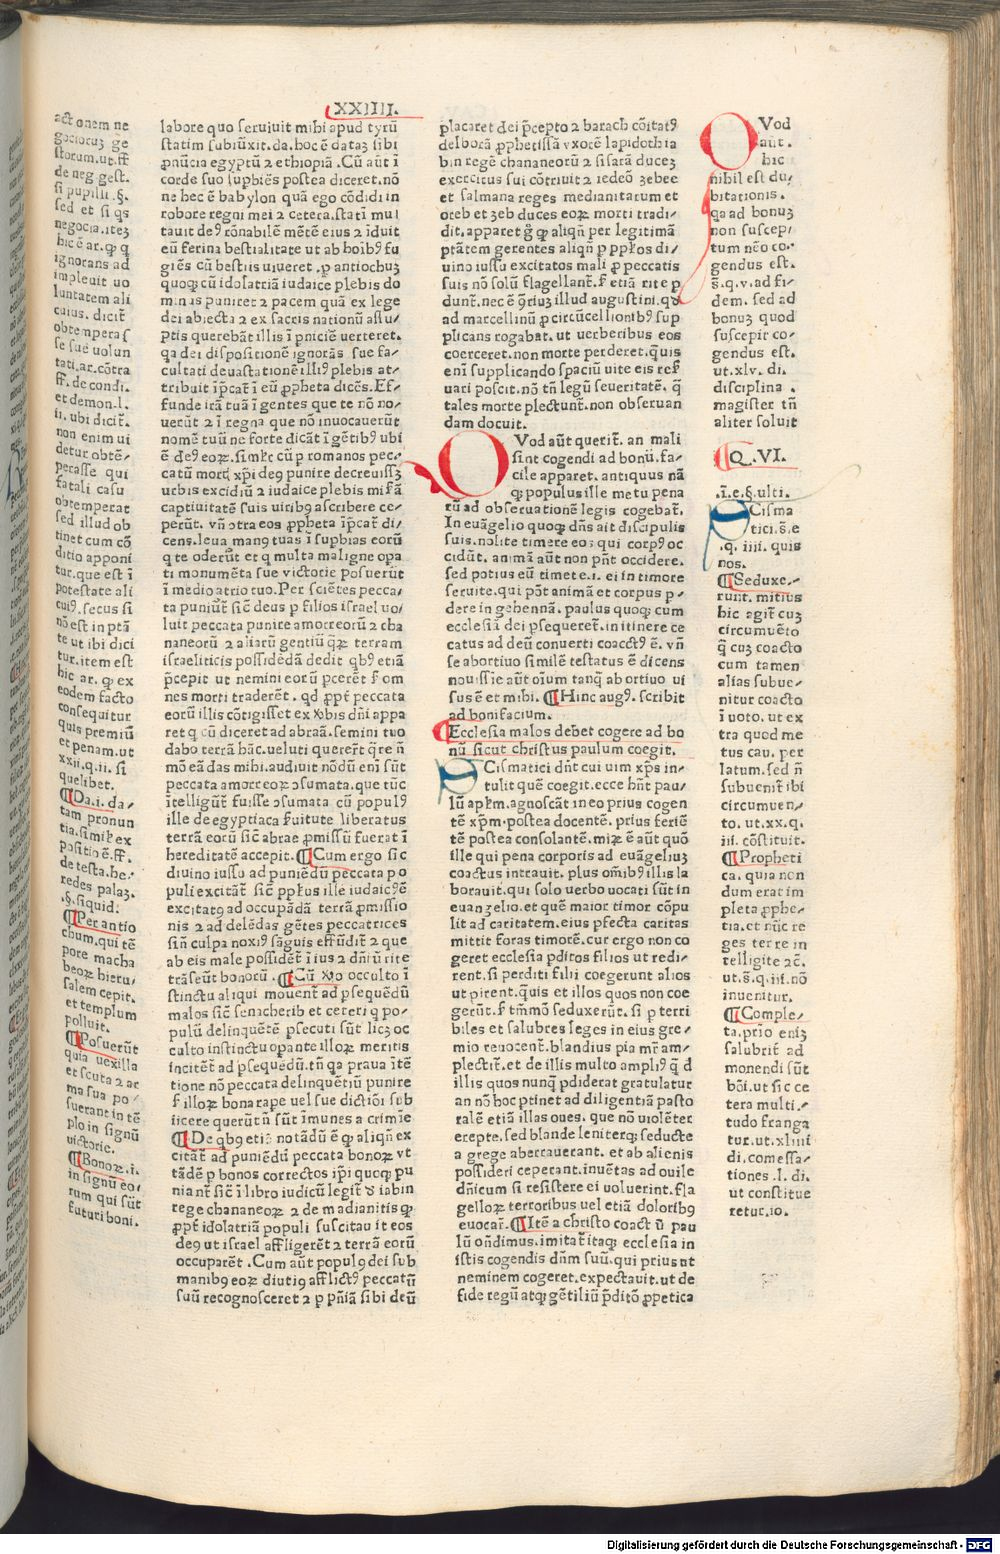 XXIIII.
actōnem ne
gocioruȝ ge
storum.ut.ff
de neg gest.
si pupilli .§.
sed et si qs
negocia.iteȝ
hic ē ar. ꝙ q
ignorans ad
impleuit uo
luntatem ali
cuius. dicit̄
obtemperaſ
se sue uolun
tati.ar.cōtra
ff. de condi.
et demon.l.
ii. ubi dicit̄.
non enim ui
detur obtē-
perasse qui
fatali casu
obtemperat
sed illud ob
tinet cum cō
ditio apponi
tur.que est ī
potestate ali
cuiꝰ. secus si
nō est in ptā
te ut ibi dici
tur.item est
hic ar. ꝙ ex
eodem facto
consequitur
quis premiū
et penam.ut
xxii.q.ii. si
quelibet.
¶Da.i. da-
tam pronun
tia.simił'e ex
positio ē.ff.
de testa.he-
redes palaȝ.
.§.siquid.
¶Per antio
chum.qui tē
pore macha
beoꝝ hieru-
salem cepit.
et templum
polluit.
¶Posuerūt
quia uexilla
et scuta ⁊ ar
ma sua po-
suerant in tē
plo in signū
uictorie.
¶Bonoꝝ.i.
in signū eo-
rum qui sūt
futuri boni.
labore quo seruiuit mihi apud tyrū
statim subiūxit.da.hoc ē dataȝ sibi
ꝓnūcia egyptū ⁊ ethiopiā .Cū aūt ī
corde suo supbiēs postea diceret.nō
ne hec ē babylon quā ego cōdidi in
robore regni mei ⁊ cetera.stati mu
tauit deꝰ rōnabilē mētē eius ⁊ īduit
eū ferina bestialitate ut ab hoībꝰ fu
giēs cū bestiis uiueret .ꝓ antiochuȝ
quoqȝ cū idolatriā iudaice plebis do
minus puniret ⁊ pacem quā ex lege
dei abiecta ⁊ ex sacris nationū assu-
ptis querebāt illis ī pniciē uerteret.
qa dei dispositionē ignorās sue fa-
cultati deuastationē illiꝰ plebis at-
tribuit īpcat̄ ī eū ꝓpheta dicēs.Ef-
funde irā tuā ī gentes que te nō no-
uerūt ⁊ ī regna que nō inuocauerūt
nomē tuū ne forte dicāt ī gētibꝰ ubi
ē deꝰ eoꝝ.simł'r cū p romanos pec-
catū mortꝭ xp̄i deꝰ punire decreuissȝ
urbis excidiū ⁊ iudaice plebis miꝭā
captiuitatē suis uiribꝰ ascribere ce-
perūt. vn̄ ꝯtra eos ꝓpheta īpcat̄ di-
cens.leua manꝰ tuas ī supbias eorū
q te oderūt et q multa maligne opa
ti monumēta sue victorie posuerūt
ī medio atrio tuo.Per sciētes pecca-
ta puniūt̄ sic̄ deus p filios israel uo/
luit peccata punire amorreorū ⁊ cha
naneorū ⁊ aliarū gentiū qꝝ terram
israeliticis possidēdā dedit qbꝰ etiā
p̄cepit ut nemini eorū pceret̄ ꝭ om
nes morti traderēt. qd ꝓpt̄ peccata
eorū illis cōtigisset ex ꝟbis dn̄i appa
ret q cū diceret ad abraā.semini tuo
dabo terrā hāc.ueluti querer̄t q̄re n̄
mō eā das mihi.audiuit nōdū enī sūt
peccata amorreoꝝ ꝯsumata.que tūc
ītelligūt̄ fuisse ꝯsumata cū populꝰ
ille de egyptiaca ꝭuitute liberatus
terrā eorū sic̄ abrae ꝓmissū fuerat ī
hereditatē accepit.¶Cum ergo sic̄
diuino iussu ad puniēdū peccata po
puli excitāt̄ sic̄ pp̄łos ille iudaicꝰē
excitatꝰ ad occupādā terrā ꝓmissio
nis ⁊ ad delēdas gētes peccatrices
sin̄ culpa noxiꝰ sāguis effūdit̄ ⁊ que
ab eis male possidēt̄ ī ius ⁊ dn̄iū rite
trāseūt bonorū .¶Cū ꝟo occulto ī
stinctu aliqui mouent̄ ad psequēdū
malos sic̄ senacherib et ceteri q po-
pulū delinquētē psecuti sūt licȝ oc
culto instinctu opante illoꝝ meritis
incitēt̄ ad psequēdū.tn̄ qa praua ītē
tione nō peccata delinquētiū punire
ꝭ illoꝝ bona rape uel sue dictiōi sub
iicere querūt n̄ sūt īmunes a crimīe
¶De qbꝰ etiā notādū ē ꝙ aliqn̄ ex
citāt̄ ad puniēdū peccata bonoꝝ vt
tādē p bonos correctos ip̄i quoqȝ pu
niant̄ sic̄ ī libro iudicū legit̄ ꝺ iabin
rege chananeoꝝ ⁊ de madianitis qꝫ
ꝓpt̄ idolatriā populi suscitauit eos
deꝰ ut israel affligerēt ⁊ terrā eorū
occuparēt .Cum aūt populꝰ dei sub
manibꝰ eoꝝ diutiꝰ afflictꝰ peccatū
suū recognosceret ⁊ p pn̄iā sibi deū
placaret dei p̄cepto ⁊ barach cōitatꝰ
delborā ꝓphetissā vxorē lapidoth ia
bin regē chananeorū ⁊ sisarā duceȝ
exercitus sui cōtriuit ⁊ iedeō ȝebee
et salmana reges medianitarum et
oreb et ȝeb duces eoꝝ morti tradi-
dit.apparet g̊ ꝙ aliqn̄ per legitimā
ptātem gerentes aliqn̄ p pp̄łos di-
uino iussu excitatos mali ꝓ peccatis
suis nō solū flagellant̄.ꝭ etiā rite p
dunt̄.nec ē ꝯ̄riuȝ illud augustini.qꝺ
ad marcellinū ꝓ circūcellionibꝰ sup
plicans rogabat. ut uerberibus eos
coerceret.non morte perderet.quis
enī supplicando spaciū uite eis reꝭ
uari poscit.nō tn̄ legū seueritatē. q̄
tales morte plectunt̄.non obseruan
dam docuit.
QVod aūt querit̄. an mali
sint cogendi ad bonū.fa-
cile apparet. antiquus nā
qꝫ populus ille metu pena
rū ad obseruationē legis cogebat̄.
In euāgelio quoqȝ dn̄s ait discipulis
suis.nolite timere eos qui corpꝰ oc
cidūt. animā aūt non pn̄t occidere.
sed potius eū timete.i. ei in timore
seruite.qui pōt animā et corpus p-
dere in gehennā. paulus quoqȝ cum
ecclesiā dei psequeret̄.in itinere ce
catus ad deū conuerti coactꝰ ē. vn̄
se abortiuo similē testatus ē dicens
nouissie aūt oīum tanq̄ abortiuo ui
sus ē et mihi. ¶Hinc augꝰ. scribit
ad bonifacium.
¶Ecclesia malos debet cogere ad bo
nū sicut christus paulum coegit.
SCismatici dn̄t cui uim xp̄s in-
tulit quē coegit.ecce hn̄t pau-
lū apłm.agnoscāt in eo prius cogen
tē xp̄m.postea docentē. prius feriē
tē postea consolantē.miꝝ ē aūt quō
ille qui pena corporis ad euāgeliuȝ
coactus intrauit. plus om̄ibꝰ illis la
borauit.qui solo uerbo uocati sūt in
euanȝelio.et quē maior timor cōpu
lit ad caritatem.eius pfecta caritas
mittit foras timorē.cur ergo non co
geret ecclesia pditos filios ut redi-
rent.si perditi filii coegerunt alios
ut pirent.quis et illos quos non coe
gerūt. ꝭ tm̄mō seduxerūt. si p terri
biles et salubres leges in eius gre-
mio reuocent̄.blandius pia mr̄ am-
plectit̄.et de illis multo ampliꝰ q̄ d
illis quos nunq̄ pdiderat gratulatur
an nō hoc ptinet ad diligentiā pasto
ralē etiā illas oues. que nō uiolēter
erepte.sed blande leniterqȝ seducte
a grege aberrauerant. et ab alienis
possideri ceperant.inuētas ad ouile
dn̄icum si resistere ei uoluerint.fla
gelloꝝ terroribus uel etiā doloribꝰ
euocar̄.¶Itē a christo coactū pau
lū on̄dimus.imitat̄ itaqȝ ecclesia in
istis cogendis dn̄m suū.qui prius ut
neminem cogeret.expectauit.ut de
fide regū atqȝ gētiliū p̄ditō ꝓpetica
QVod
aūt.
hic
nihil est du-
bitationis.
qa ad bonuȝ
non suscep-
tum nēo co-
gendus est.
§.q.v.ad fi-
dem. sed ad
bonuȝ quod
suscepit co-
gendus est.
ut.xlv. di.
disciplina .
magister tn̄
aliter soluit
¶Q.VI.
.i.e.§.ulti.
SCisma
tici.§.e
.q. iiii. quis
nos.
¶Seduxe-
runt. mitius
hic agit̄ cuȝ
circumuēto
q̄ cuȝ coacto
cum tamen
alias subue-
nitur coacto
ī uoto. ut ex
tra quod me
tus cau. per
latum.sed n̄
subuenit̄ ibi
circumuen-
to. ut.xx.q.
iii. cōstituit.
¶Propheti
ca. quia non
dum erat im
pleta ꝓphe-
tia.et nūc re
ges terre in
telligite ⁊c̄.
ut.§.q.iii.nō
inuenitur.
¶Comple-
ta.prio eniȝ
salubrit̄ ad
monendi sūt
bōi.ut sic ce
tera multi-
tudo franga
tur.ut.xliiii
di.comessa-
tiones .l. di.
ut constitue
retur.io.
Digitalisierung gefördert durch die Deutsche Forschungsgemeinschaft - DFG